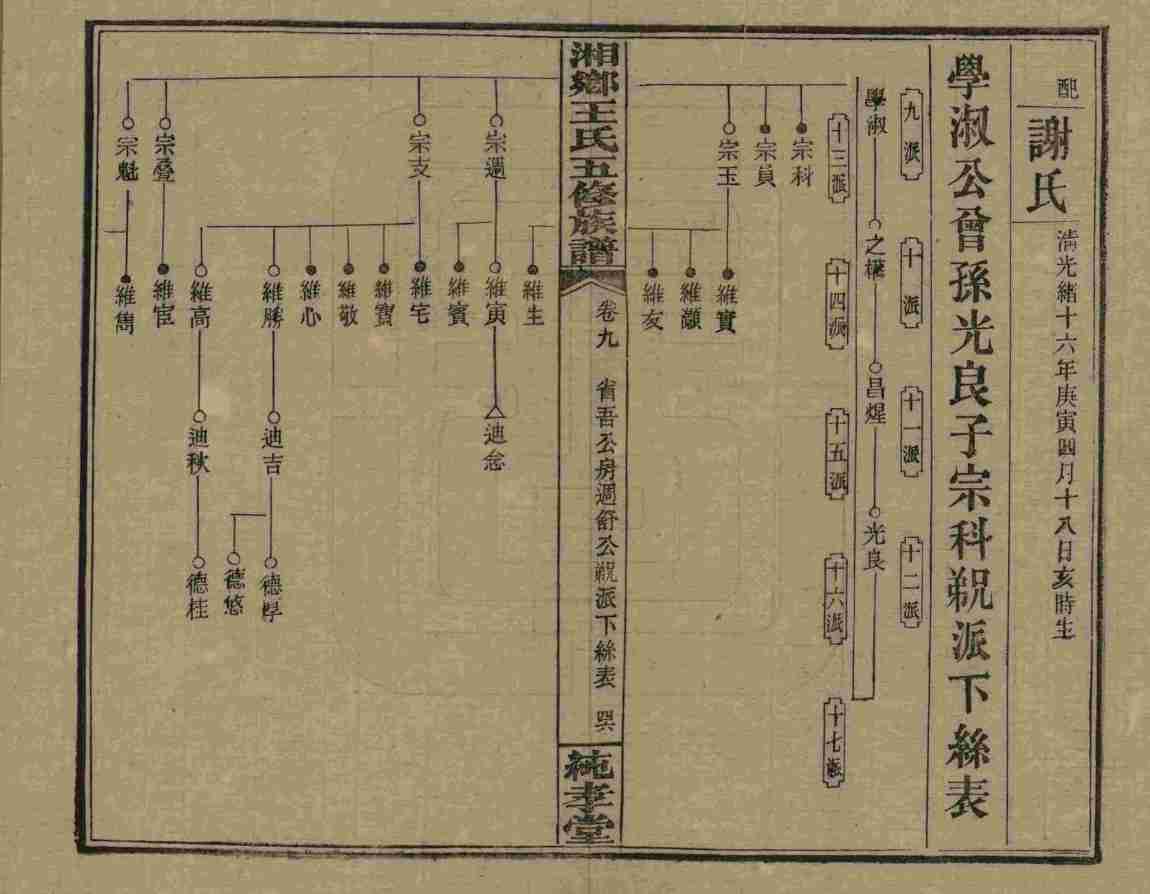 配
謝氏
清光緒十六年庚寅四月十八日亥時生
學淑公曾孫光良子宗科䊵派下絲表
九派
十派
十一派
十二派
學淑
之
昌煋
光良
十三派
十四派
十五派
十六派
十七派
宗科
宗員
宗玉
維實
維灝
維友
湘鄉王氏五修族譜
卷九
省吾公房週舒公派下絲表
純孝堂
維生
宗週
維寅
迪忩
維賓
宗支
維宅
維寶
維敬
維心
維勝
迪吉
德厚
德悠
維高
迪秋
德桂
宗疊
維宦
宗魁
維雋